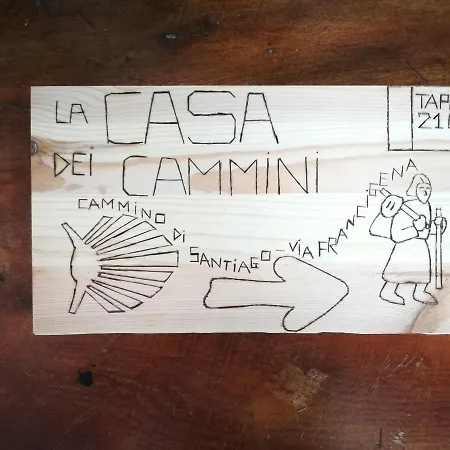 LA CASA
DEI CAMMINI
CAMMINO DI SANTIAGO - VIA FRANCIGENA